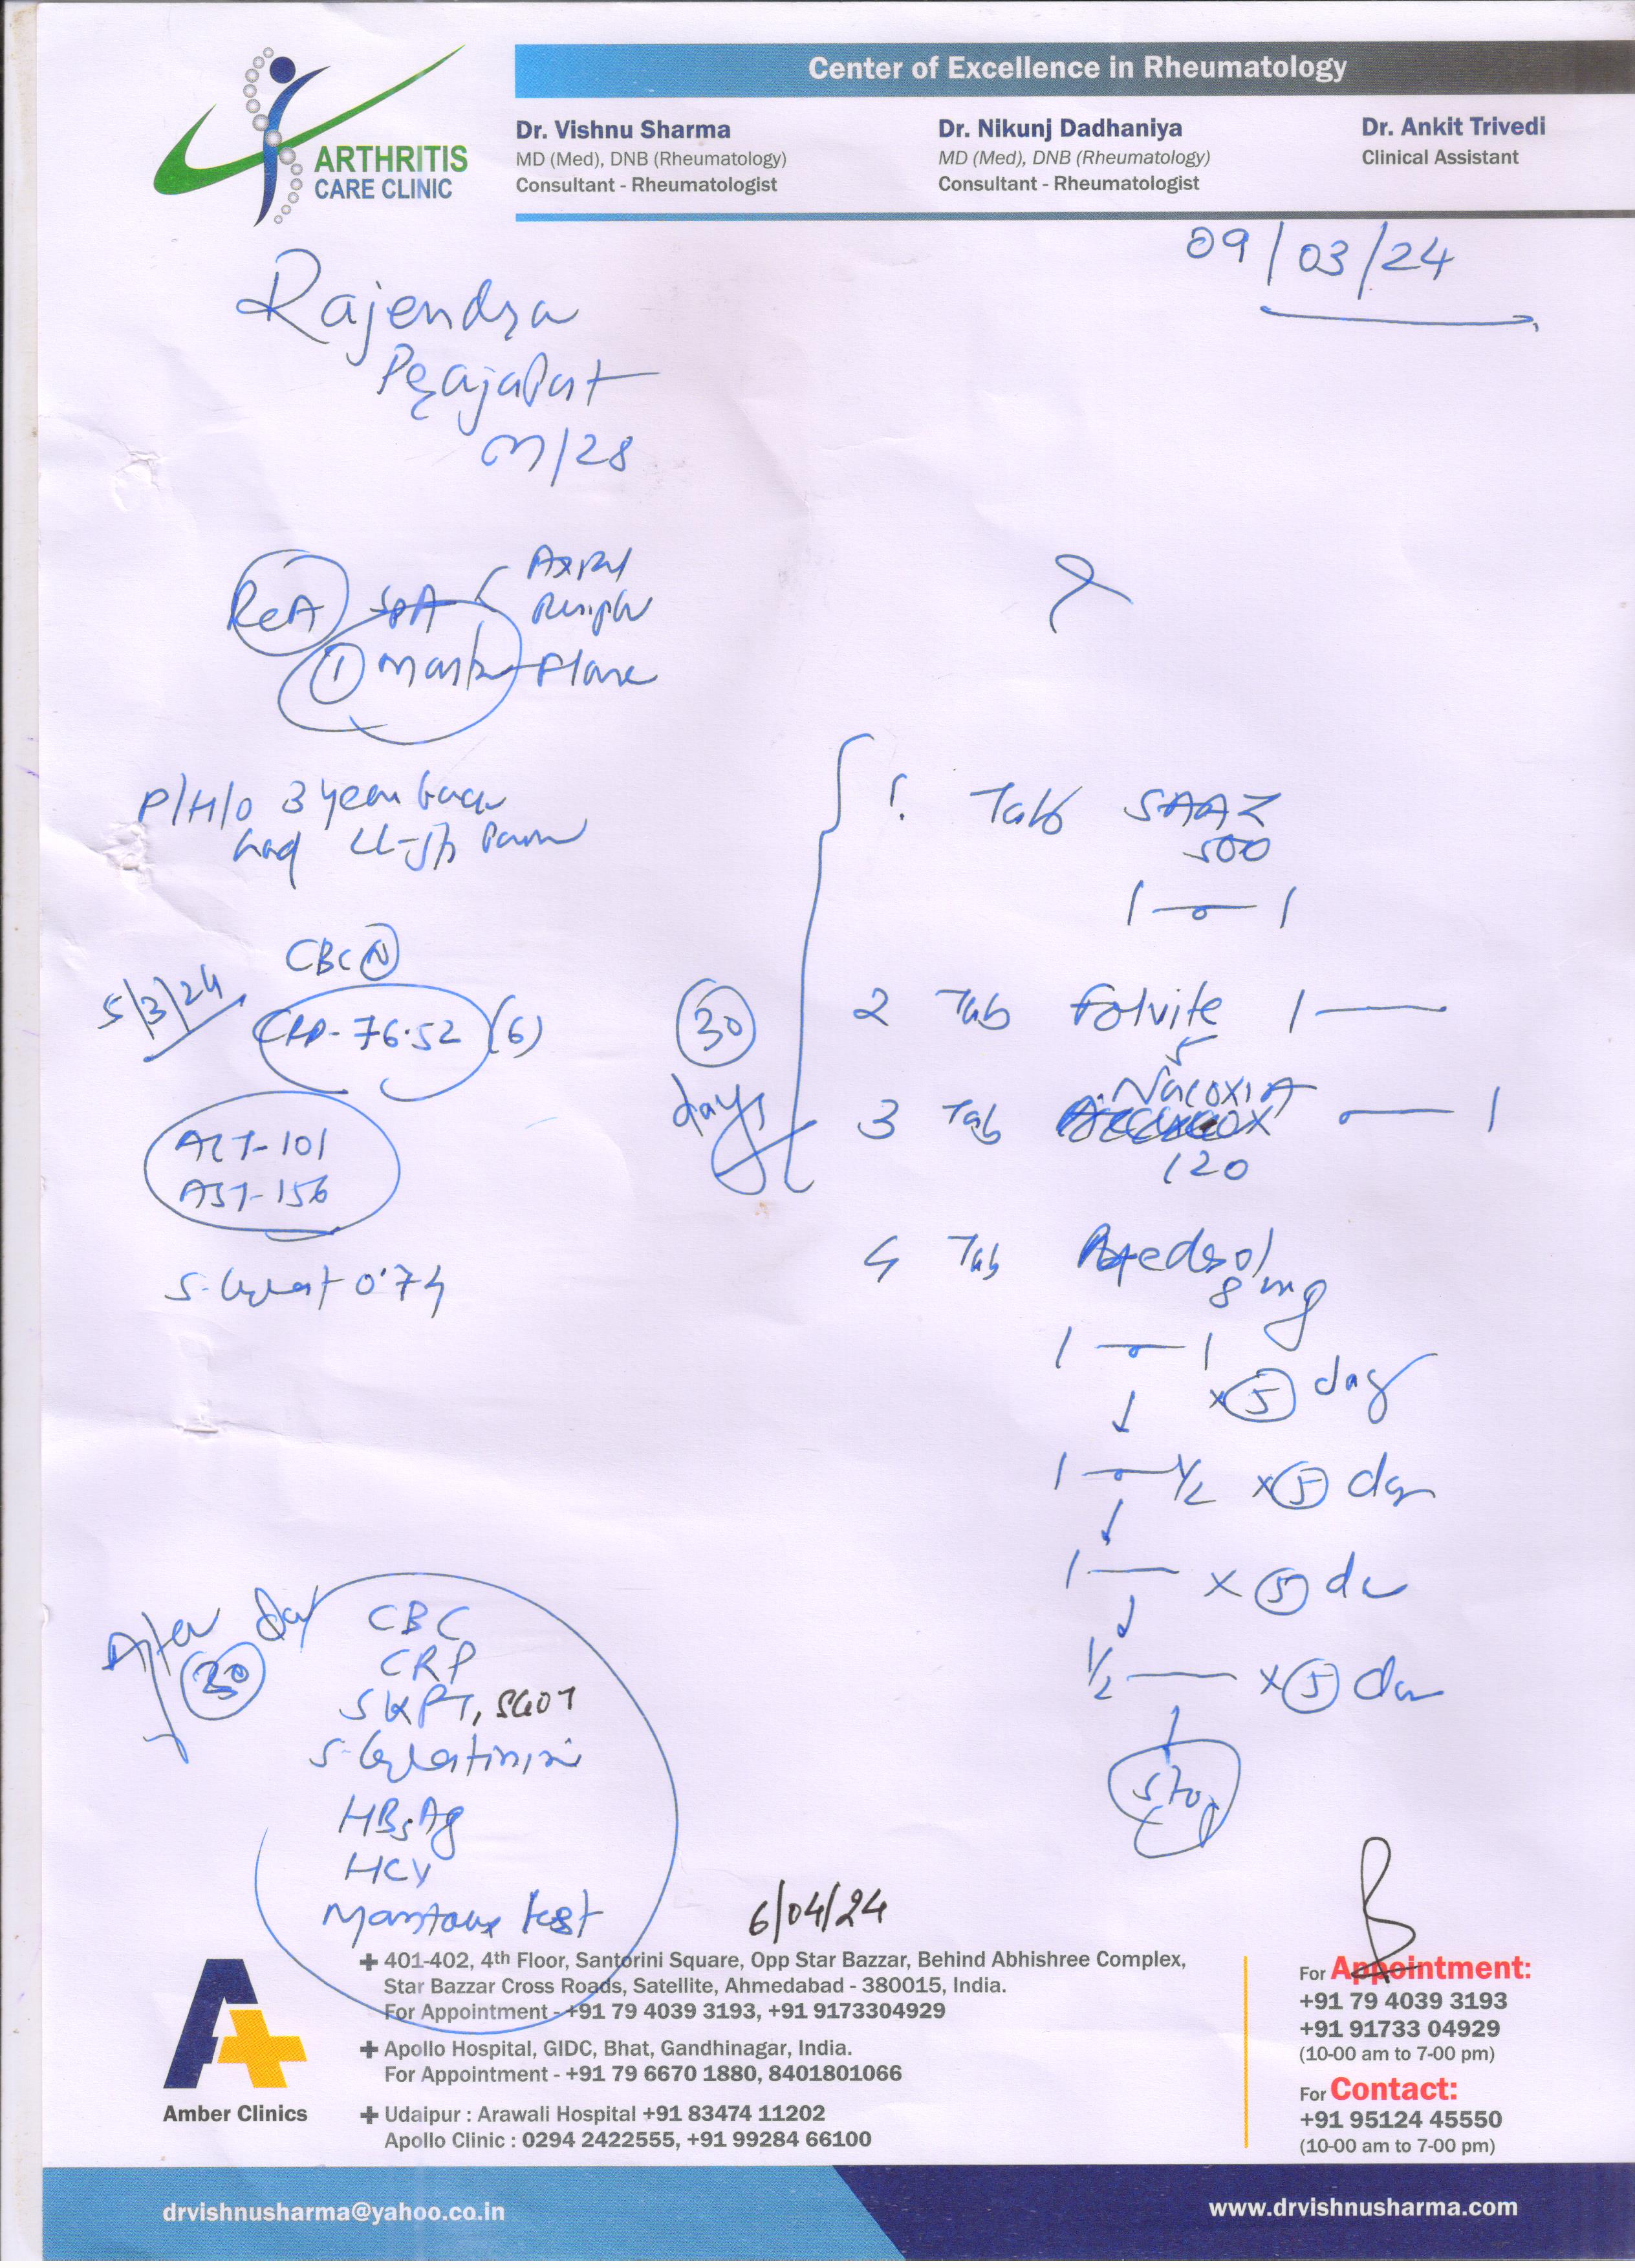 Center of Excellence in Rheumatology
ARTHRITIS
CARE CLINIC
Dr. Vishnu Sharma
MD (Med), DNB (Rheumatology)
Consultant - Rheumatologist
Dr. Nikunj Dadhaniya
MD (Med), DNB (Rheumatology)
Consultant - Rheumatologist
Dr. Ankit Trivedi
Clinical Assistant
09/03/24
Rajendra
Prajapat
M/28
ReA SPA Axial
① Flare
P/H/O 3 year back
had pain
5/3/24
CBC N
CRP- 76.52 (6)
ALT-101
AST-156
S. Creat 0.74
30
days
1. Tab SAAZ
500
1 — 0 — 1
2 Tab Folvite 1 —
5
3 Tab Nucoxia 0 — 1
120
4 Tab Medrol
8 mg
1 — 0 — 1
x 5 day
↓
1 — 0 — 1/2 x 5 day
↓
1 — x 5 da
↓
1/2 — x 5 day
↓
stop
After 30 day
CBC
CRP
SGPT, SGOT
S. Creatinine
HBsAg
HCV
Mantoux test
6/04/24
Amber Clinics
401-402, 4th Floor, Santorini Square, Opp Star Bazzar, Behind Abhishree Complex,
Star Bazzar Cross Roads, Satellite, Ahmedabad - 380015, India.
For Appointment - +91 79 4039 3193, +91 9173304929
Apollo Hospital, GIDC, Bhat, Gandhinagar, India.
For Appointment - +91 79 6670 1880, 8401801066
Udaipur : Arawali Hospital +91 83474 11202
Apollo Clinic : 0294 2422555, +91 99284 66100
For Appointment:
+91 79 4039 3193
+91 91733 04929
(10-00 am to 7-00 pm)
For Contact:
+91 95124 45550
(10-00 am to 7-00 pm)
drvishnusharma@yahoo.co.in
www.drvishnusharma.com